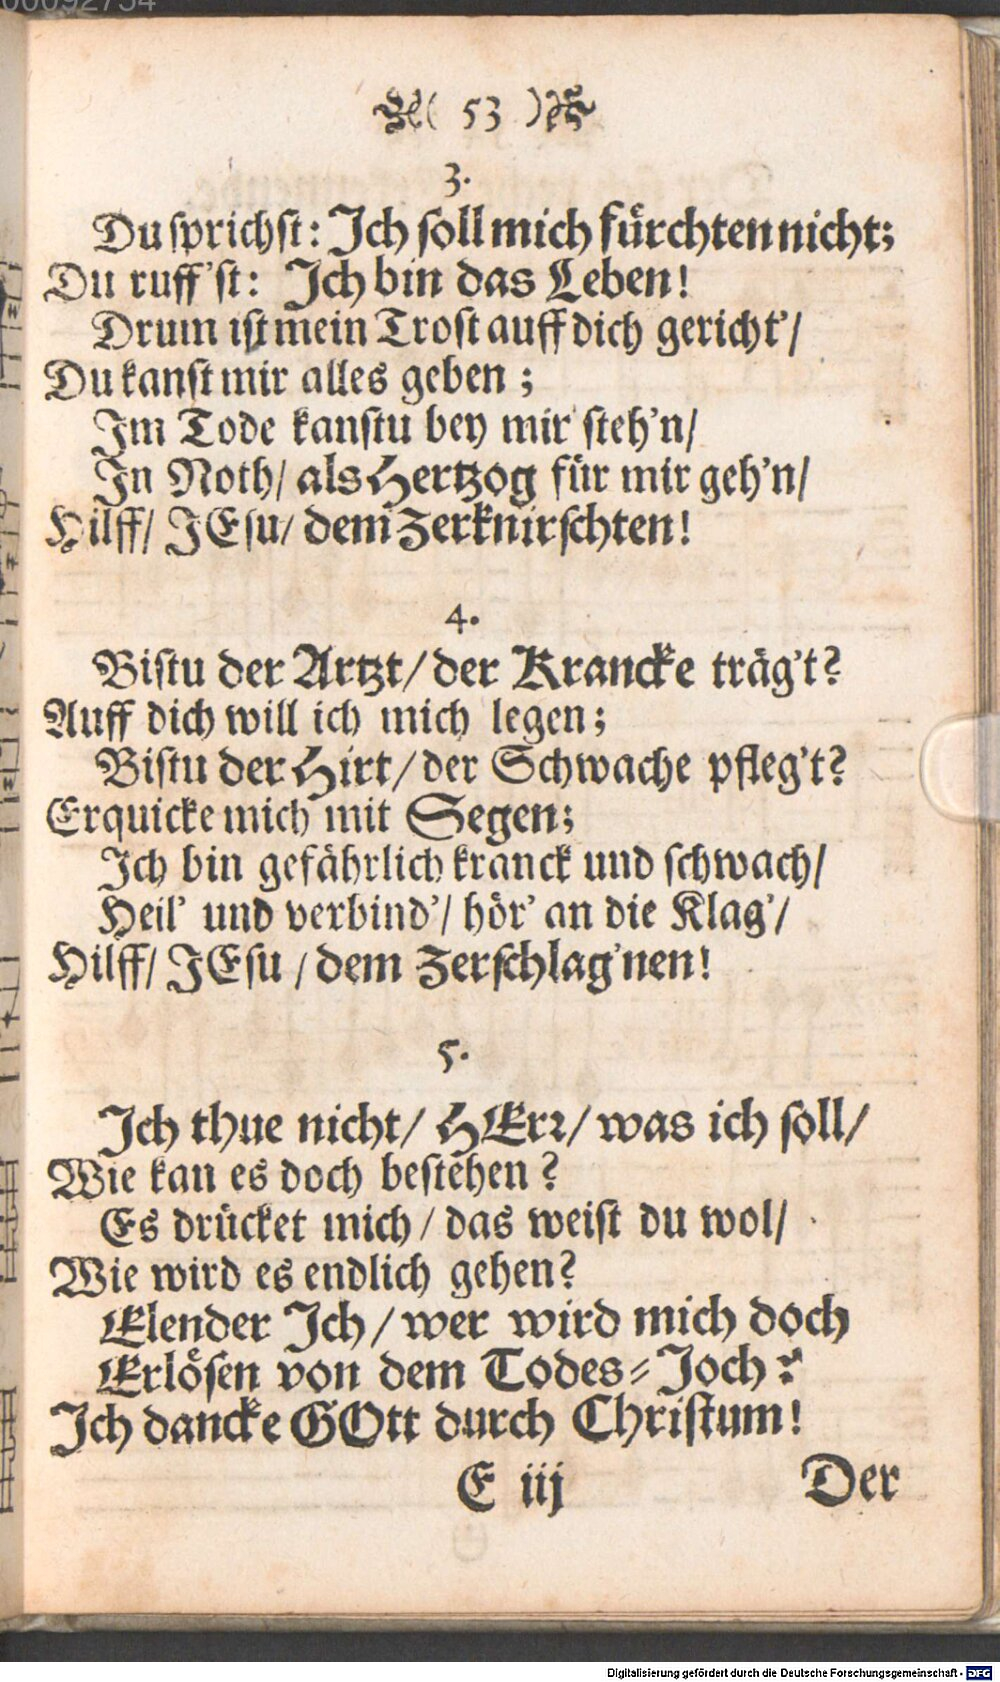 ( 53 )
3.
Du sprichst: Ich soll mich fürchten nicht;
Du ruff'st: Ich bin das Leben!
Drum ist mein Trost auff dich gericht'/
Du kanst mir alles geben;
Im Tode kanstu bey mir steh'n/
In Noth/ als Hertzog für mir geh'n/
Hilff/ JEsu/ dem Zerknirschten!
4.
Bistu der Artzt/ der Krancke träg't?
Auff dich will ich mich legen;
Bistu der Hirt/ der Schwache pfleg't?
Erquicke mich mit Segen;
Ich bin gefährlich kranck und schwach/
Heil' und verbind'/ hör' an die Klag'/
Hilff/ JEsu/ dem Zerschlag'nen!
5.
Ich thue nicht/ HErr/ was ich soll/
Wie kan es doch bestehen?
Es drücket mich/ das weist du wol/
Wie wird es endlich gehen?
Elender Ich/ wer wird mich doch
Erlösen von dem Todes-Joch?
Ich dancke GOtt durch Christum!
E iij Der
Digitalisierung gefördert durch die Deutsche Forschungsgemeinschaft - DFG